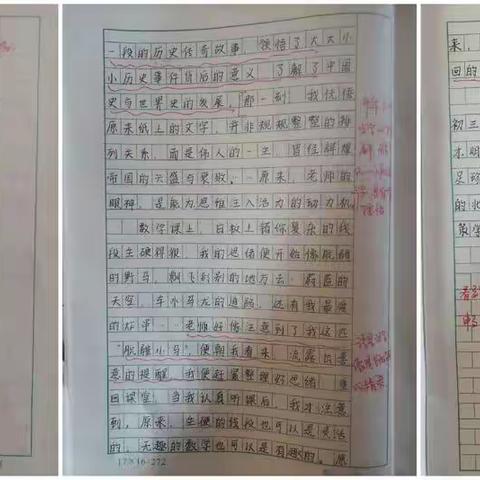 一段的历史传奇故事,领悟了大大小
小历史事件背后的意义,了解了中国
史与世界史的发展。那一刻,我恍悟
原来纸上的文字,并非规规整整的排
列关系,而是伟人的一生,曾经辉煌
帝国的兴盛与衰败。原来,老师的
眼神,是能为思维注入活力的动力机
数学课上,白板上错综复杂的线
段生硬得很,我的思绪便开始像脱缰
的野马,飘飞到别的地方去。蔚蓝的
天空,车水马龙的道路,还有我最爱
的炸串……老师好像注意到了我这匹
"脱缰小马",便朝我看来,流露出善
意的提醒。我便赶紧整理好思绪,重
回课堂。当我认真听课后,我才注意
到,原来,生硬的线段也可以是灵活
的,无趣的数学也可以是有趣的。原
17×16=272
来,
回的
初三
木明
足球
的北
策学